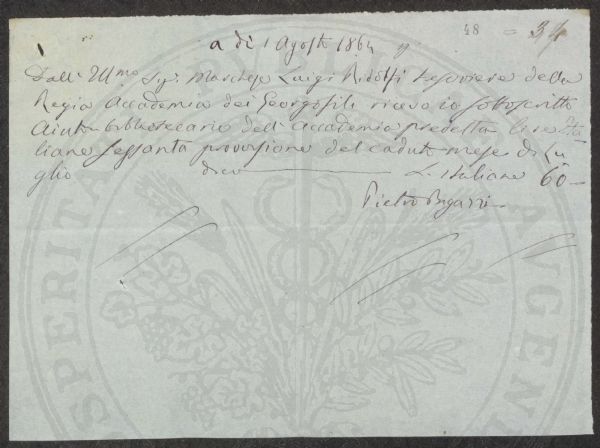 48 = 34
a dì 1 Agosto 1864
Dall' Illmo Sigr. Marchese Luigi Ridolfi tesoriere della
Regia Accademia dei Georgofili ricevo io sottoscritto
Aiuto bibliotecario dell'Accademia predetta lire Ita
liane sessanta provvisione del caduto mese di Lu
glio dico L. Italiane 60 -
Pietro
PROSPERITA PUBLIC AUGENDAE